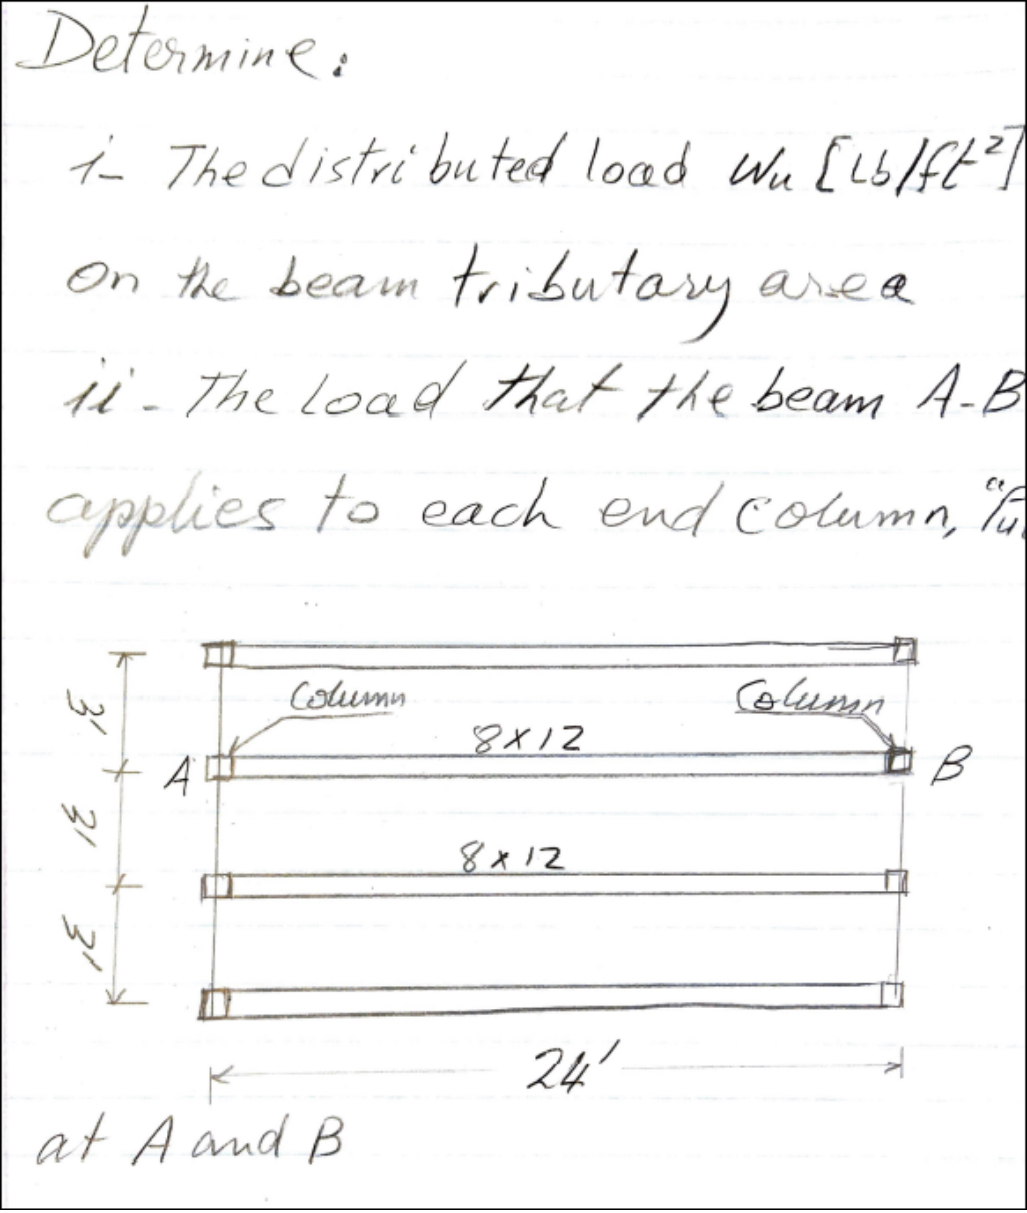 Determine:
i- The distributed load Wu [Lb/ft²]
on the beam tributary area
ii- The load that the beam A-B
applies to each end column, "Pu
3'
Column
Column
8x12
A
B
3'
8x12
3'
24'
at A and B